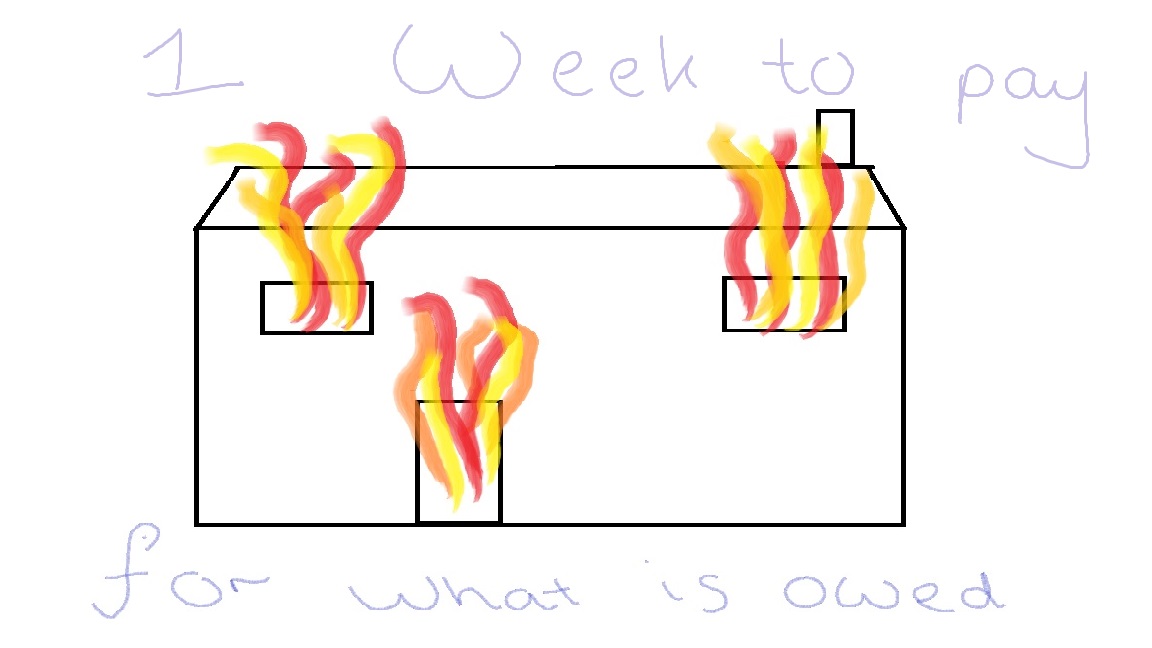 1 Week to pay
for what is owed